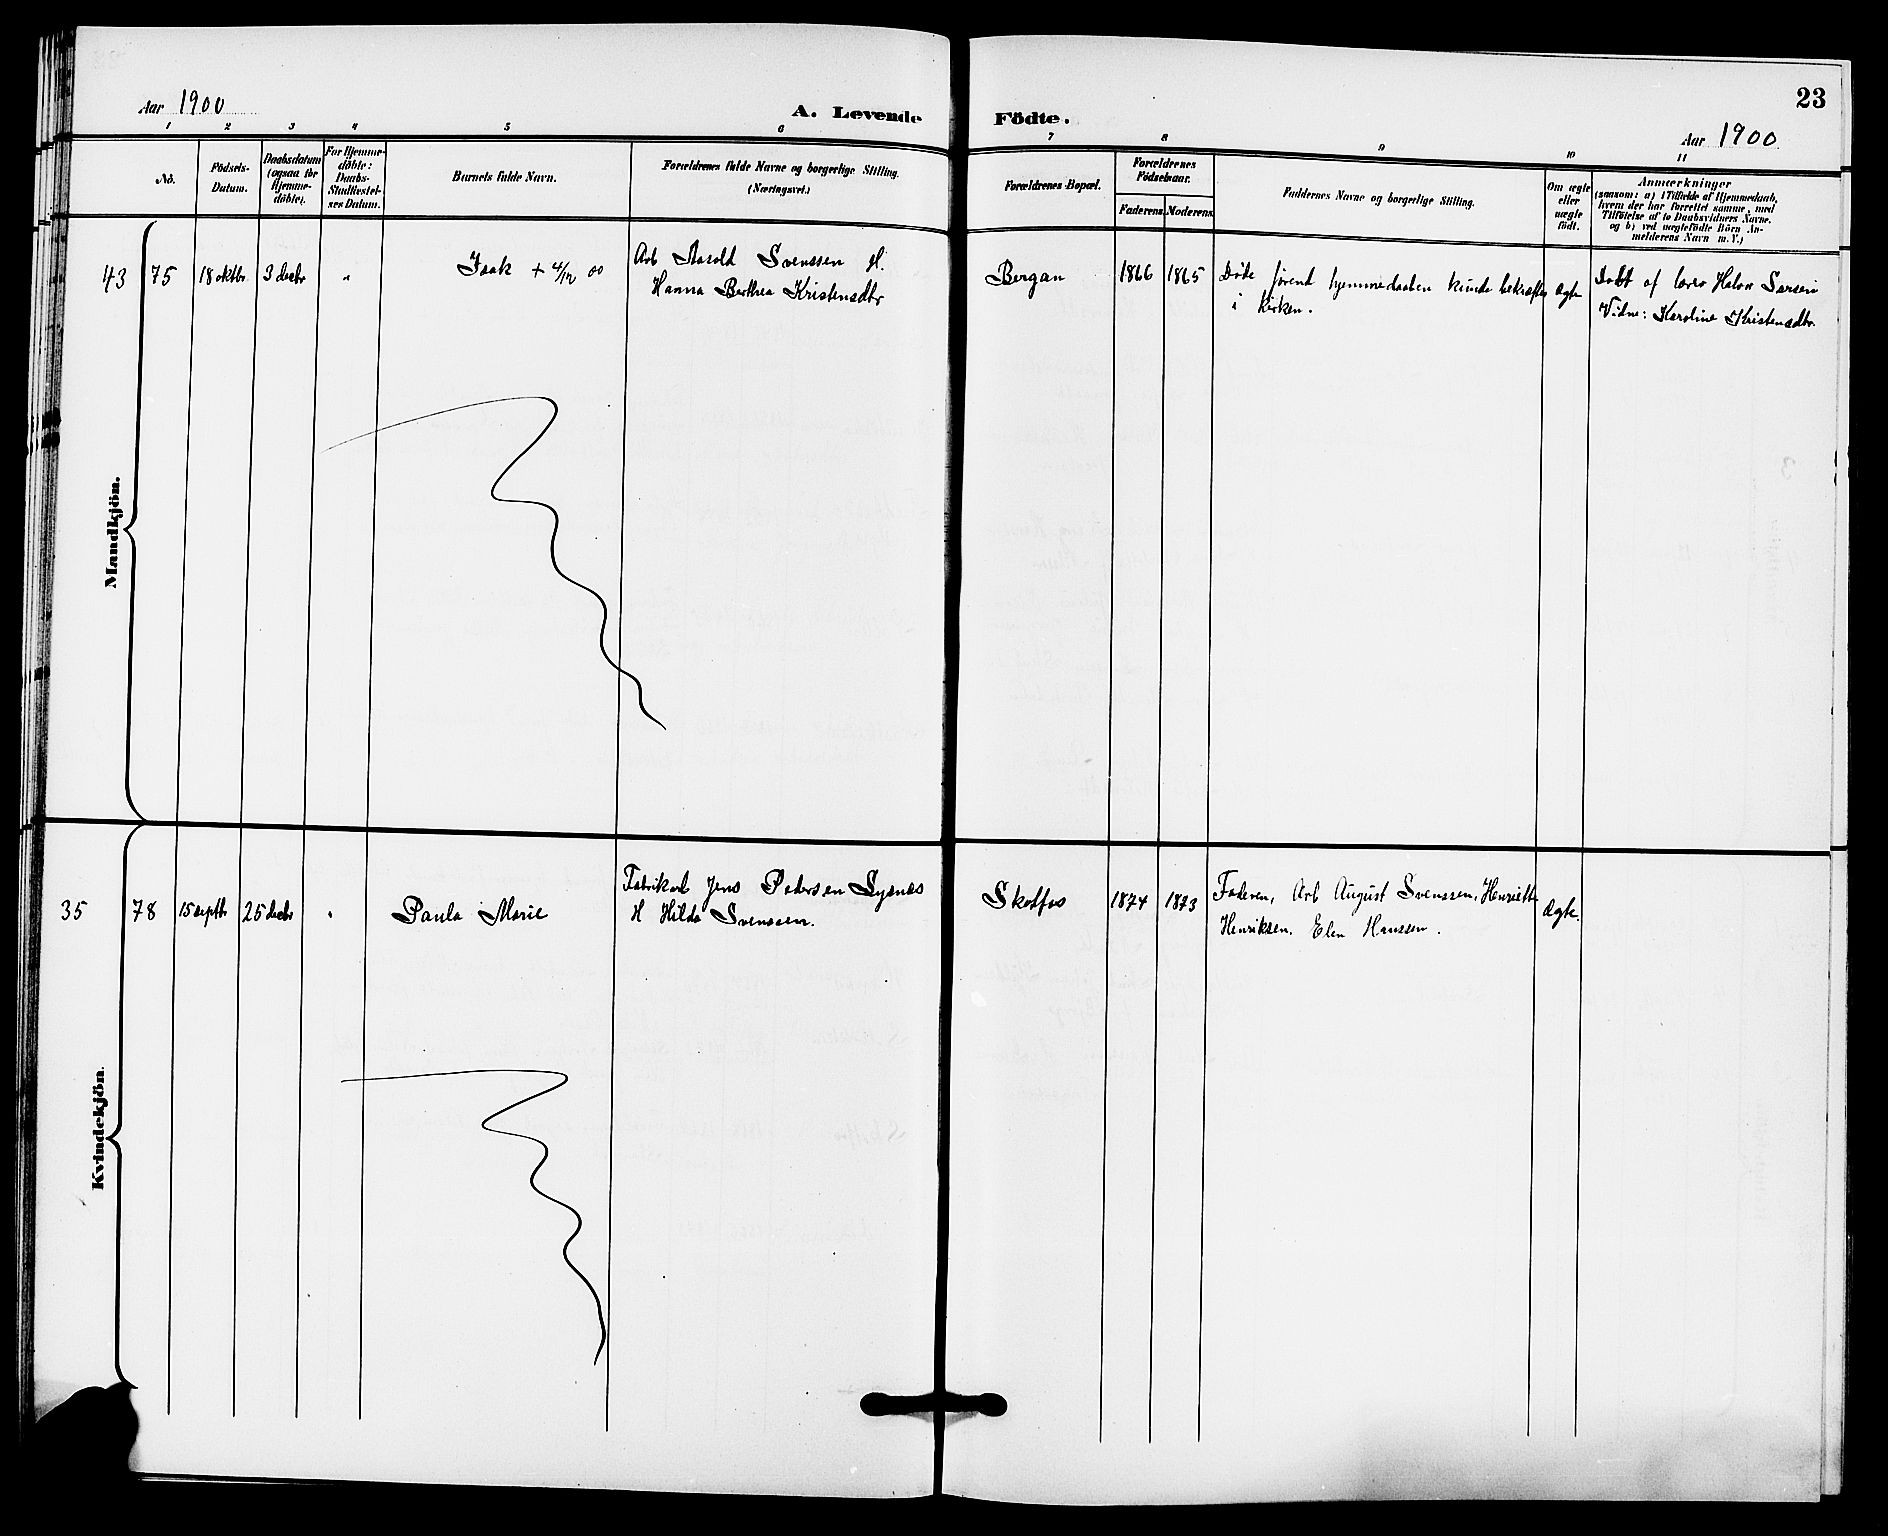 23
Aar 1900
A. Levende Födte.
Aar 1900
1 2 3 4 5 6 7 8 9 10 11
No.
Födsels-
Datum.
Daabsdatum
(ogsaa for
Hjemme-
döbte).
For Hjemme-
döbte:
Daabs-
Stadfæstel-
ses Datum.
Barnets fulde Navn.
Forældrenes fulde Navne og borgerlige Stilling.
(Næringsvei.)
Forældrenes Bopæl.
Forældrenes
Födselsaar.
Faderens. Moderens.
Faddernes Navne og borgerlige Stilling.
Om ægte
eller
uægte
födt.
Anmærkninger
(saasom: a) i Tilfælde af Hjemmedaab,
hvem der har forrettet samme, med
Tilföielse af to Daabsvidners Navne.
og b) ved uægtefödte Börn An-
melderens Navn m. V.)
Mandkjön.
43 75 18 oktbr 3 decbr " Isak + 4/12 00
Arb Aasold Svenssen H.
Hanna Berthea Kristensdtr
Bergan 1866 1865
Døde førend hjemmedaaben kunde bekræftes
i Kirken.
Ægte
Døbt af lærer Halvor
Vidne: Karoline Kristensdtr.
Kvindekjön.
35 78 15 septbr 25 decbr " Paula Marie
Fabrikarb Jens Pedersen Lysnes
H Hilda Svenssen.
Skotfos 1874 1873
Faderen, Arb August Svenssen, Henriette
Henriksen. Elen Hanssen.
Ægte.